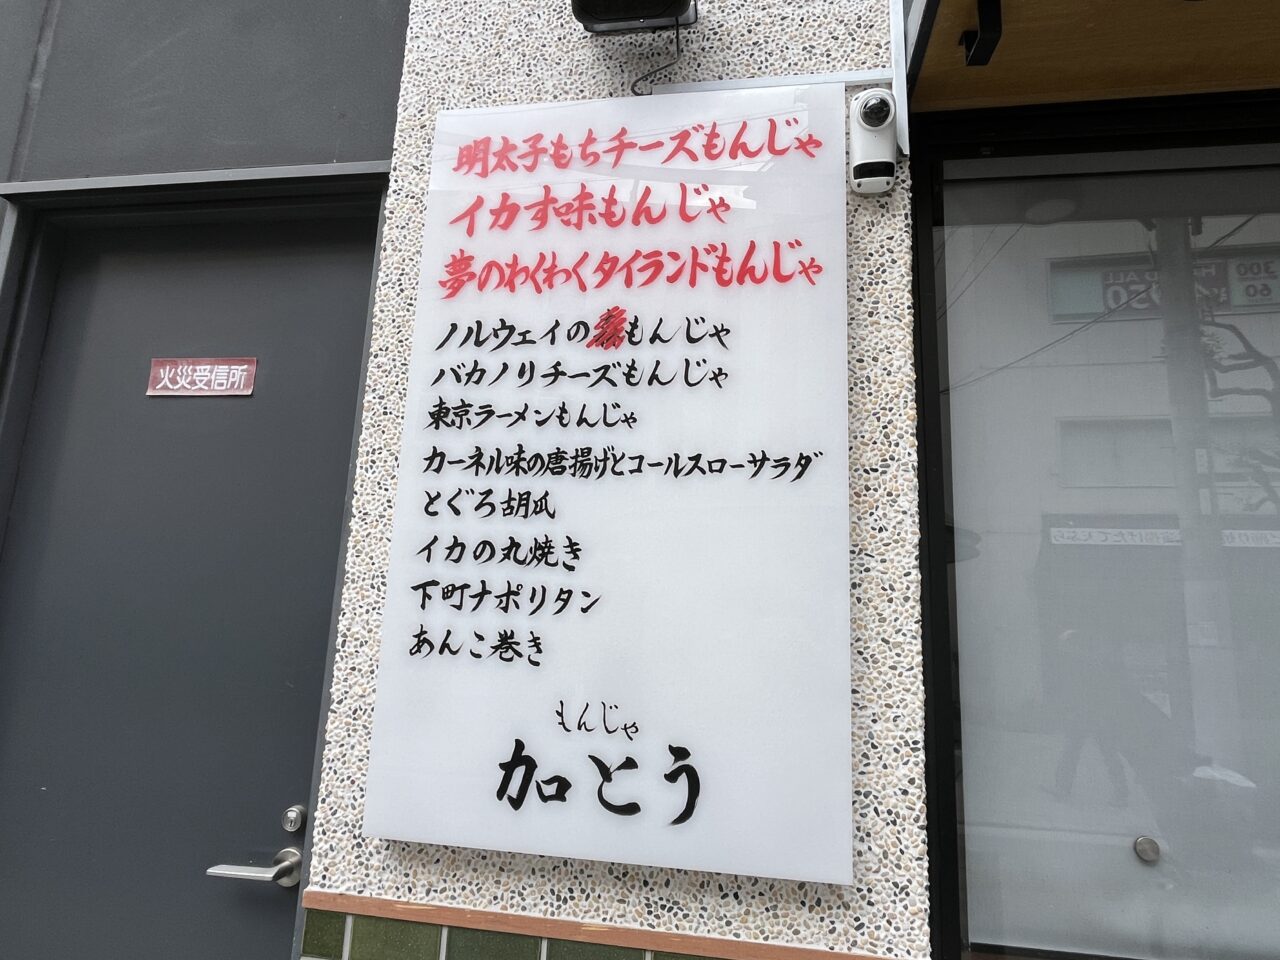 明太子もちチーズもんじゃ
イカす味もんじゃ
夢のわくわくタイランドもんじゃ
ノルウェイのもんじゃ
バカノリチーズもんじゃ
東京ラーメンもんじゃ
カーネル味の唐揚げとコールスローサラダ
とぐろ胡瓜
イカの丸焼き
下町ナポリタン
あんこ巻き
もんじゃ
加とう
火災受信所